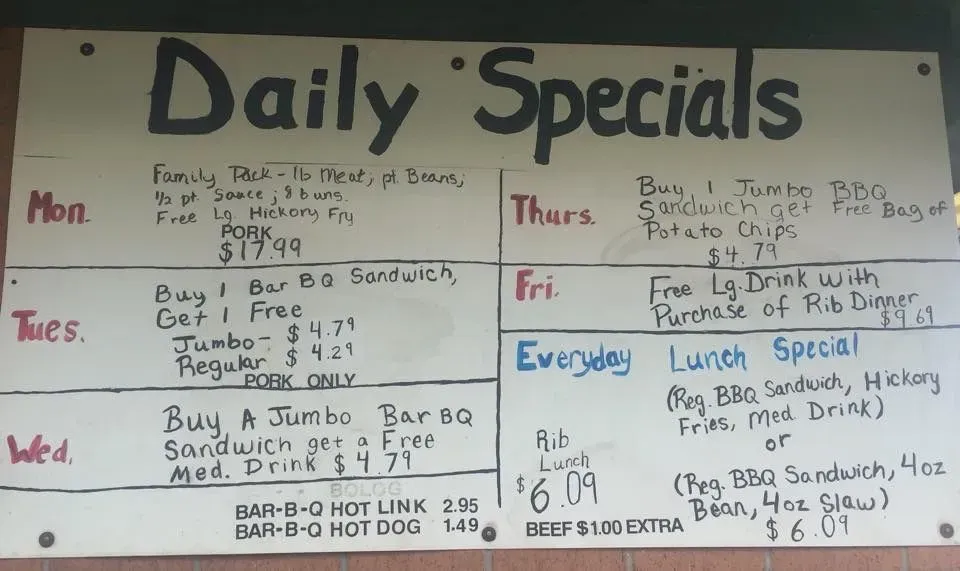 Daily Specials
Mon.
Family Pack - 1lb Meat; pt. Beans;
1/2 pt. Sauce; 8 buns.
Free Lg. Hickory Fry
PORK
$17.99
Tues.
Buy 1 Bar BQ Sandwich,
Get 1 Free
Jumbo- $4.79
Regular $4.29
PORK ONLY
Wed.
Buy A Jumbo Bar BQ
Sandwich get a Free
Med. Drink $4.79
BOLOG
BAR-B-Q HOT LINK 2.95
BAR-B-Q HOT DOG 1.49
Thurs.
Buy 1 Jumbo BBQ
Sandwich get Free Bag of
Potato Chips
$4.79
Fri.
Free Lg. Drink with
Purchase of Rib Dinner
$9.69
Everyday Lunch Special
(Reg. BBQ Sandwich, Hickory
Fries, Med Drink)
or
(Reg. BBQ Sandwich, 4oz
Bean, 4oz Slaw)
$6.09
Rib
Lunch
$6.09
BEEF $1.00 EXTRA